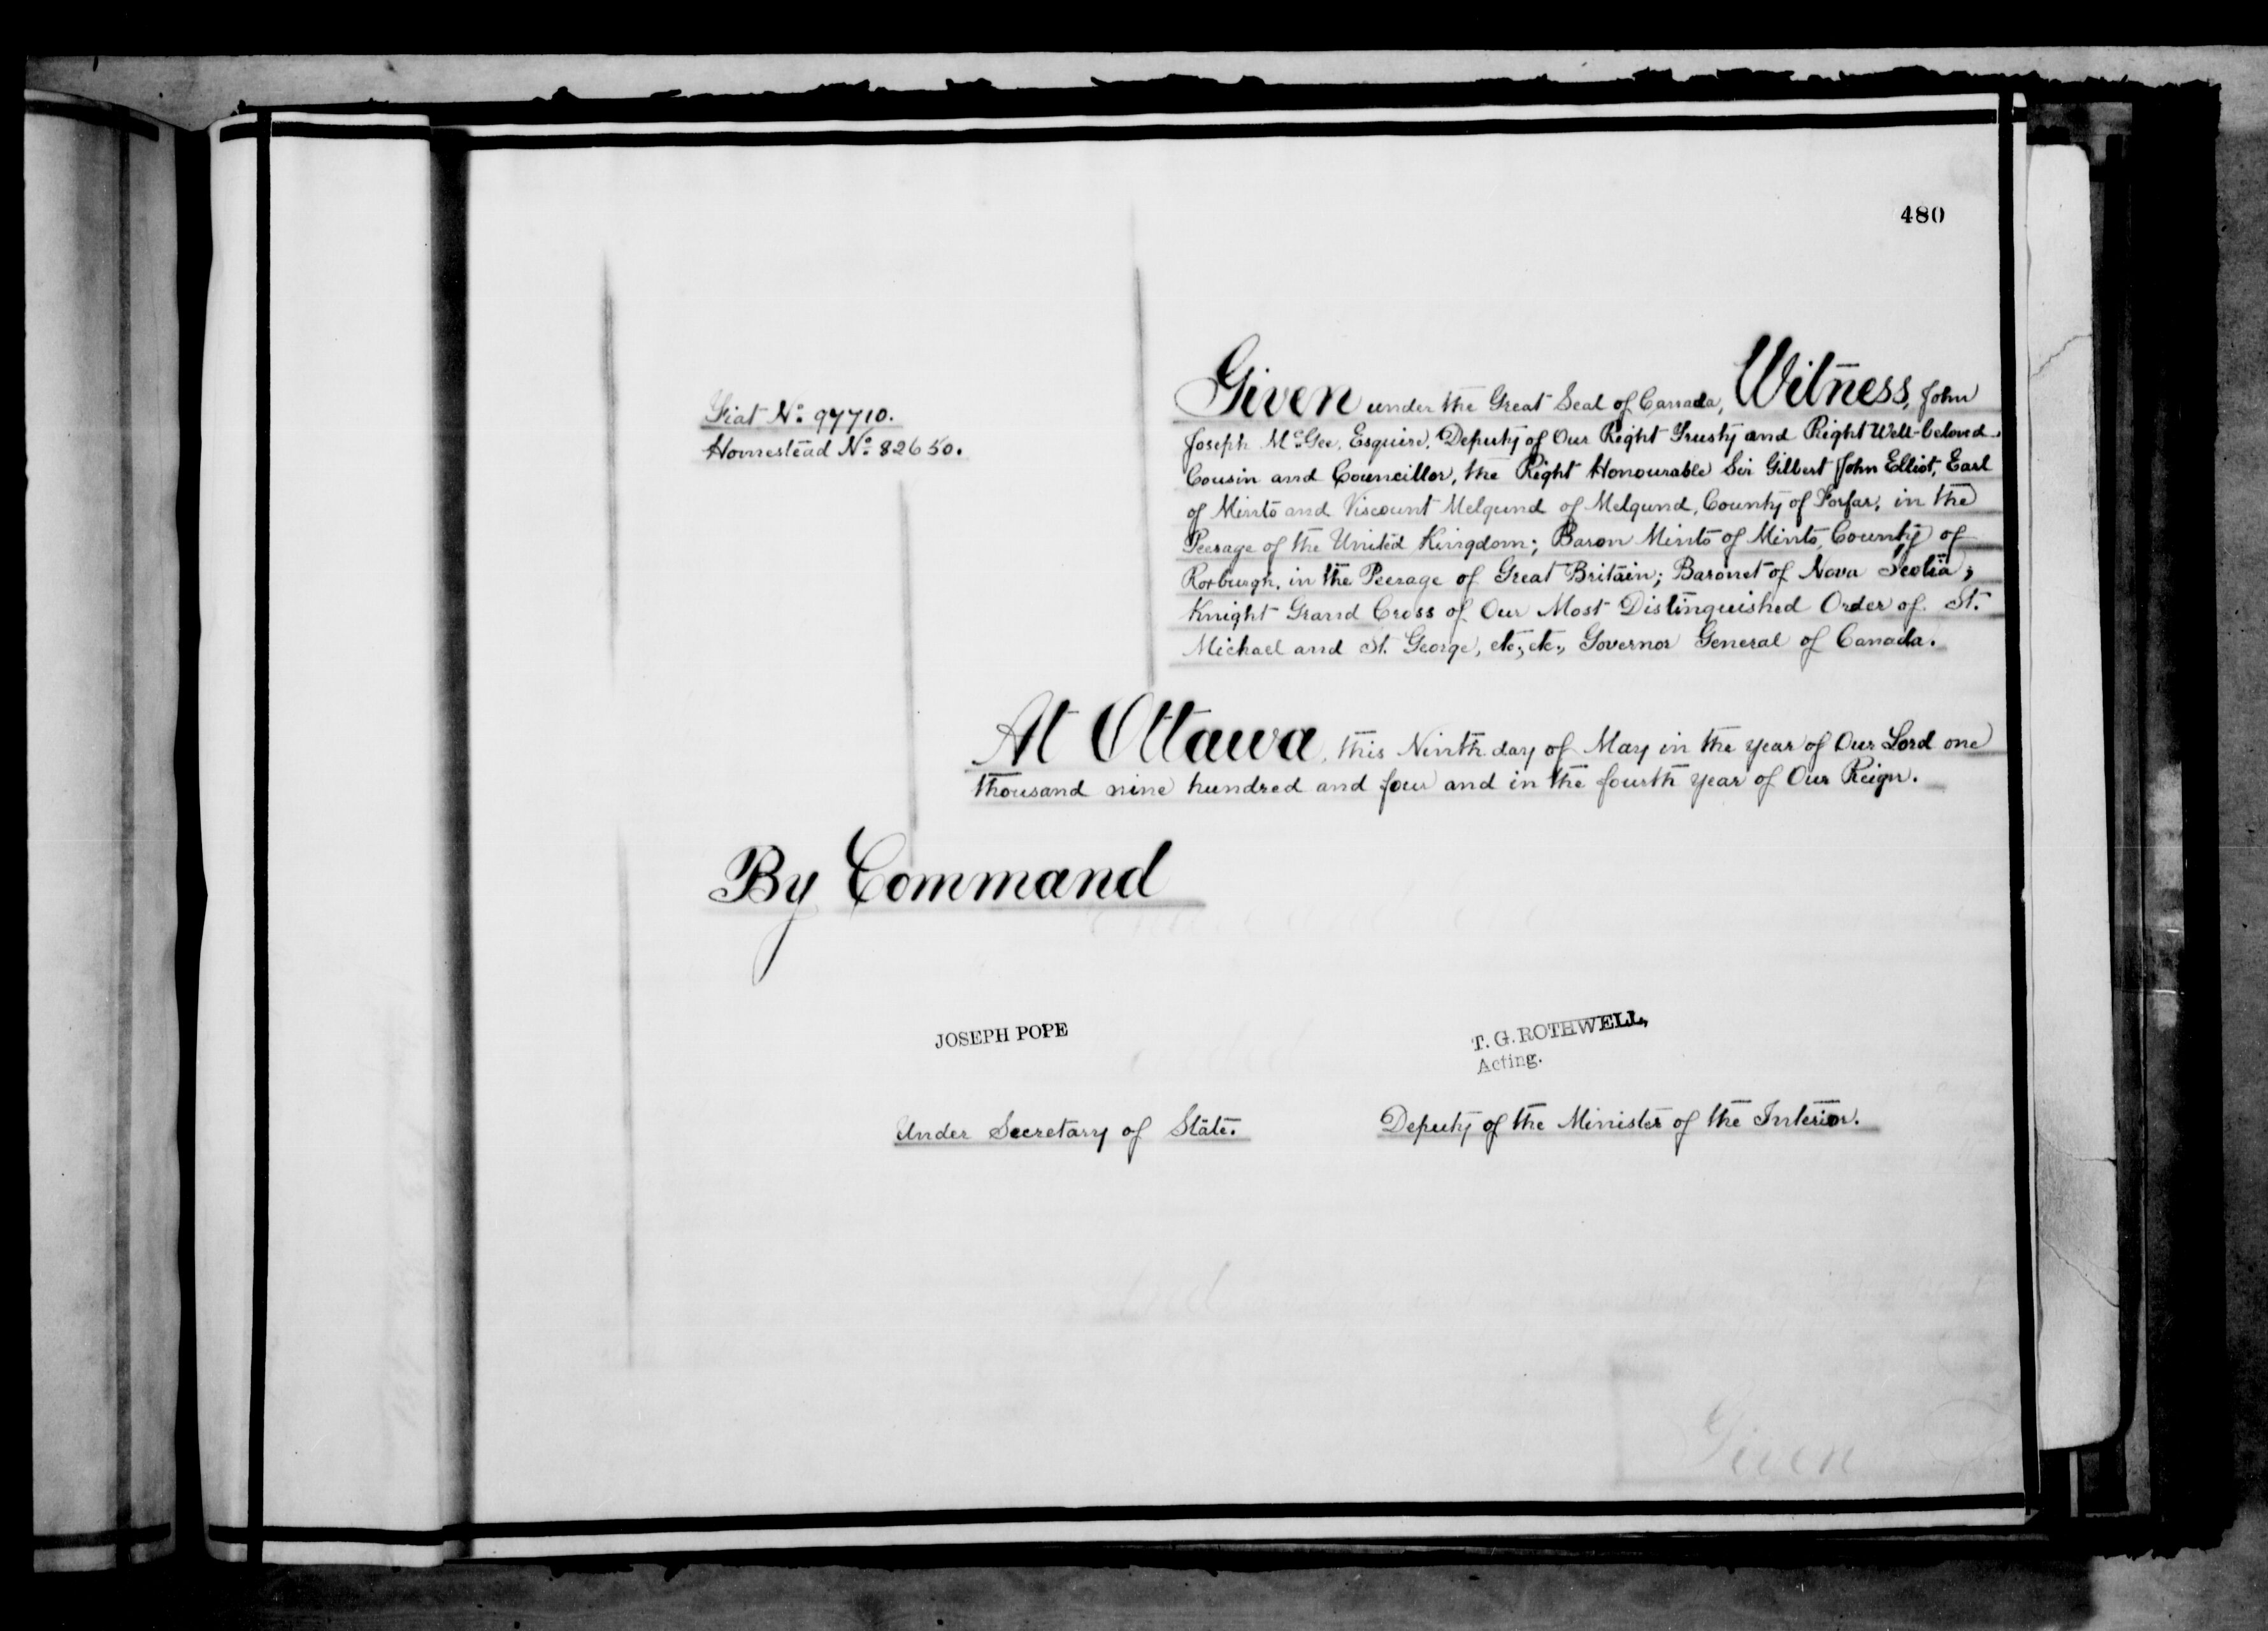 480
Fiat No. 97710.
Homestead No. 82650.
Given under the Great Seal of Canada, Witness, John
Joseph McGee, Esquire, Deputy of Our Right Trusty and Right Well-beloved
Cousin and Councillor, the Right Honourable Sir Gilbert John Elliot, Earl
of Minto and Viscount Melgund of Melgund, County of Forfar, in the
Peerage of the United Kingdom; Baron Minto of Minto, County of
Roxburgh, in the Peerage of Great Britain; Baronet of Nova Scotia;
Knight Grand Cross of Our Most Distinguished Order of St.
Michael and St. George, etc., etc., Governor General of Canada.
At Ottawa, this Ninth day of May in the year of Our Lord one
thousand nine hundred and four and in the fourth year of Our Reign.
By Command
JOSEPH POPE
T. G. ROTHWELL,
Acting.
Under Secretary of State.
Deputy of the Minister of the Interior.
Given